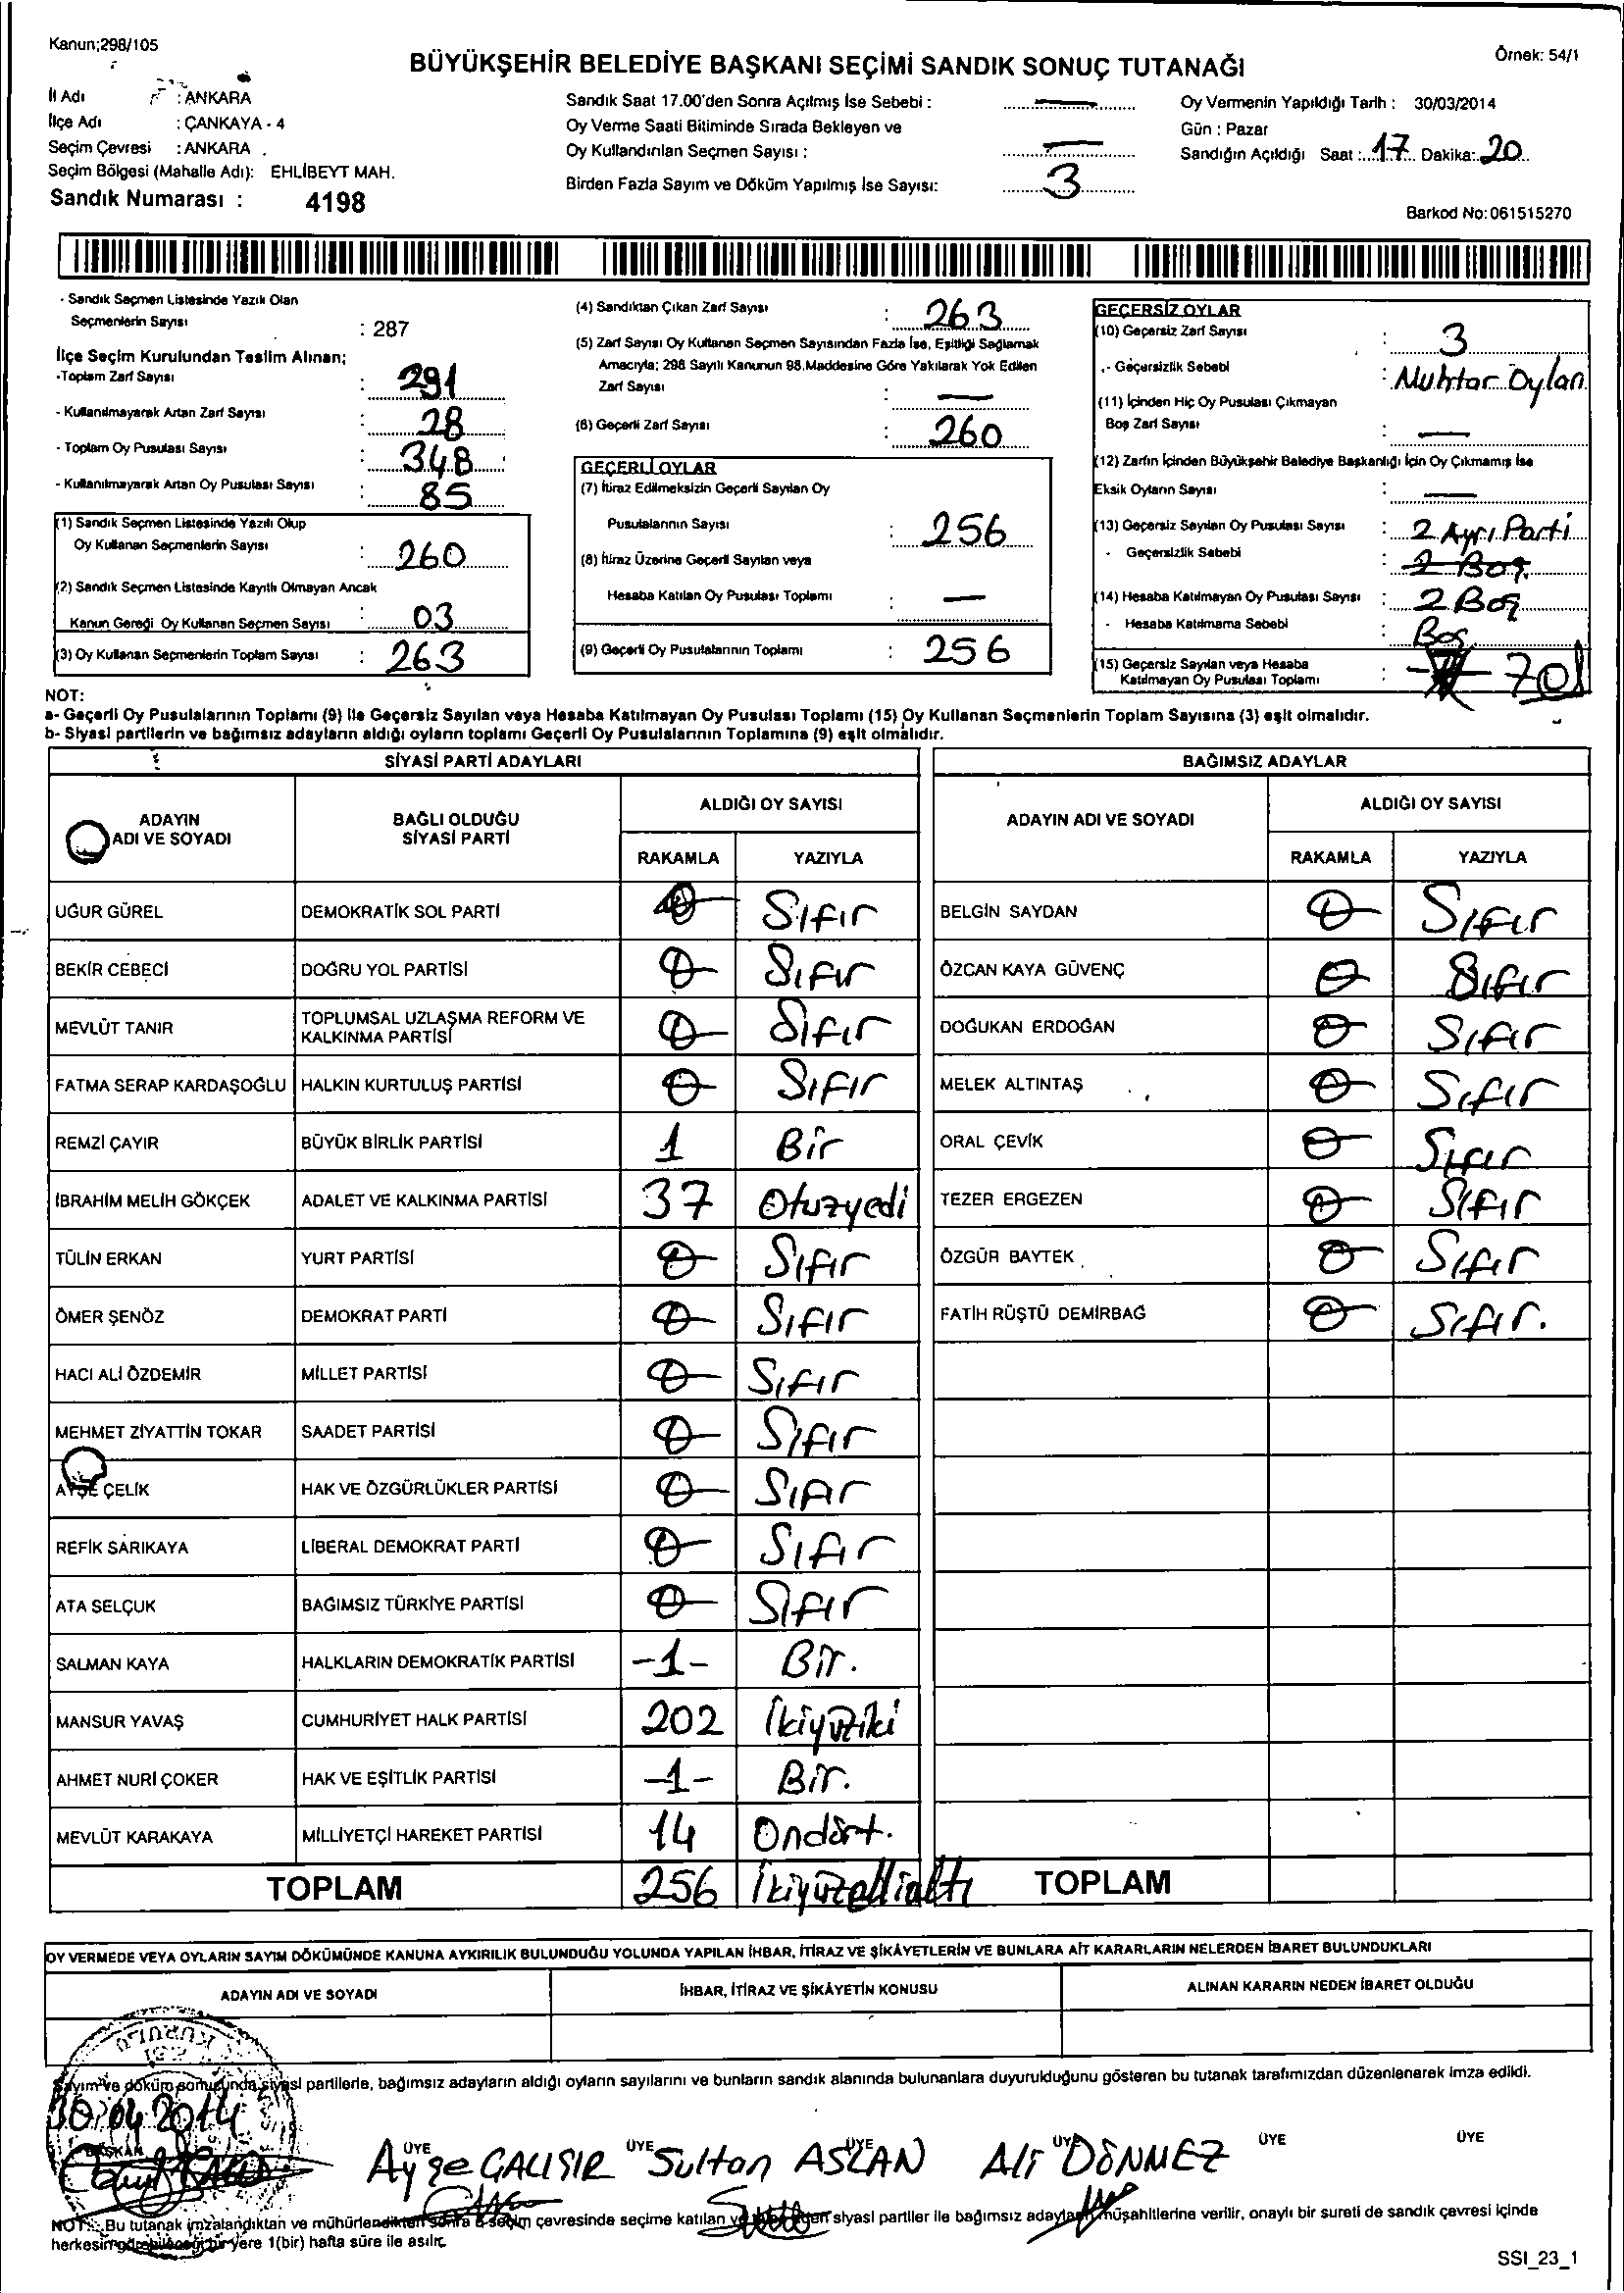 Kanun;298/105
BÜYÜKŞEHİR BELEDİYE BAŞKANI SEÇİMİ SANDIK SONUÇ TUTANAĞI
Örnek: 54/1
İl Adı : ANKARA
İlçe Adı : ÇANKAYA - 4
Seçim Çevresi : ANKARA
Seçim Bölgesi (Mahalle Adı): EHLİBEYT MAH.
Sandık Numarası : 4198
Sandık Saat 17.00'den Sonra Açılmış İse Sebebi : —
Oy Verme Saati Bitiminde Sırada Bekleyen ve
Oy Kullandırılan Seçmen Sayısı : —
Birden Fazla Sayım ve Döküm Yapılmış İse Sayısı: 3
Oy Vermenin Yapıldığı Tarih : 30/03/2014
Gün : Pazar
Sandığın Açıldığı Saat : 17 Dakika: 20
Barkod No: 061515270
- Sandık Seçmen Listesinde Yazılı Olan
Seçmenlerin Sayısı : 287
İlçe Seçim Kurulundan Teslim Alınan;
-Toplam Zarf Sayısı : 291
- Kullanılmayarak Artan Zarf Sayısı : 28
- Toplam Oy Pusulası Sayısı : 348
- Kullanılmayarak Artan Oy Pusulası Sayısı : 85
(1) Sandık Seçmen Listesinde Yazılı Olup
Oy Kullanan Seçmenlerin Sayısı : 260
(2) Sandık Seçmen Listesinde Kayıtlı Olmayan Ancak
Kanun Gereği Oy Kullanan Seçmen Sayısı : 03
(3) Oy Kullanan Seçmenlerin Toplam Sayısı : 263
(4) Sandıktan Çıkan Zarf Sayısı : 263
(5) Zarf Sayısı Oy Kullanan Seçmen Sayısından Fazla İse, Eşitliği Sağlamak
Amacıyla; 298 Sayılı Kanunun 98.Maddesine Göre Yakılarak Yok Edilen
Zarf Sayısı : —
(6) Geçerli Zarf Sayısı : 260
GEÇERLİ OYLAR
(7) İtiraz Edilmeksizin Geçerli Sayılan Oy
Pusulalarının Sayısı : 256
(8) İtiraz Üzerine Geçerli Sayılan veya
Hesaba Katılan Oy Pusulası Toplamı : —
(9) Geçerli Oy Pusulalarının Toplamı : 256
GEÇERSİZ OYLAR
(10) Geçersiz Zarf Sayısı : 3
- Geçersizlik Sebebi : Muhtar Oyları
(11) İçinden Hiç Oy Pusulası Çıkmayan
Boş Zarf Sayısı : —
(12) Zarfın İçinden Büyükşehir Belediye Başkanlığı İçin Oy Çıkmamış İse
Eksik Oyların Sayısı : —
(13) Geçersiz Sayılan Oy Pusulası Sayısı : 2 Ayrı Parti
- Geçersizlik Sebebi : 2 Boş
(14) Hesaba Katılmayan Oy Pusulası Sayısı : 2 Boş
- Hesaba Katılmama Sebebi : Boş
(15) Geçersiz Sayılan veya Hesaba
Katılmayan Oy Pusulası Toplamı :
NOT:
a- Geçerli Oy Pusulalarının Toplamı (9) ile Geçersiz Sayılan veya Hesaba Katılmayan Oy Pusulası Toplamı (15) Oy Kullanan Seçmenlerin Toplam Sayısına (3) eşit olmalıdır.
b- Siyasi partilerin ve bağımsız adayların aldığı oyların toplamı Geçerli Oy Pusulalarının Toplamına (9) eşit olmalıdır.
SİYASİ PARTİ ADAYLARI
ADAYIN ADI VE SOYADI BAĞLI OLDUĞU SİYASİ PARTİ ALDIĞI OY SAYISI
RAKAMLA YAZIYLA
UĞUR GÜREL DEMOKRATİK SOL PARTİ 0 Sıfır
BEKİR CEBECİ DOĞRU YOL PARTİSİ 0 Sıfır
MEVLÜT TANIR TOPLUMSAL UZLAŞMA REFORM VE KALKINMA PARTİSİ 0 Sıfır
FATMA SERAP KARDAŞOĞLU HALKIN KURTULUŞ PARTİSİ 0 Sıfır
REMZİ ÇAYIR BÜYÜK BİRLİK PARTİSİ 1 Bir
İBRAHİM MELİH GÖKÇEK ADALET VE KALKINMA PARTİSİ 37 Otuzyedi
TÜLİN ERKAN YURT PARTİSİ 0 Sıfır
ÖMER ŞENÖZ DEMOKRAT PARTİ 0 Sıfır
HACI ALİ ÖZDEMİR MİLLET PARTİSİ 0 Sıfır
MEHMET ZİYATTİN TOKAR SAADET PARTİSİ 0 Sıfır
AYŞE ÇELİK HAK VE ÖZGÜRLÜKLER PARTİSİ 0 Sıfır
REFİK SARIKAYA LİBERAL DEMOKRAT PARTİ 0 Sıfır
ATA SELÇUK BAĞIMSIZ TÜRKİYE PARTİSİ 0 Sıfır
SALMAN KAYA HALKLARIN DEMOKRATİK PARTİSİ -1- Bir.
MANSUR YAVAŞ CUMHURİYET HALK PARTİSİ 202 İkiyüziki
AHMET NURİ ÇOKER HAK VE EŞİTLİK PARTİSİ -1- Bir.
MEVLÜT KARAKAYA MİLLİYETÇİ HAREKET PARTİSİ 14 Ondört.
TOPLAM 256 İkiyüzellialtı
BAĞIMSIZ ADAYLAR
ADAYIN ADI VE SOYADI ALDIĞI OY SAYISI
RAKAMLA YAZIYLA
BELGİN SAYDAN 0 Sıfır
ÖZCAN KAYA GÜVENÇ 0 Sıfır
DOĞUKAN ERDOĞAN 0 Sıfır
MELEK ALTINTAŞ 0 Sıfır
ORAL ÇEVİK 0 Sıfır
TEZER ERGEZEN 0 Sıfır
ÖZGÜR BAYTEK 0 Sıfır
FATİH RÜŞTÜ DEMİRBAĞ 0 Sıfır.
TOPLAM
OY VERMEDE VEYA OYLARIN SAYIM DÖKÜMÜNDE KANUNA AYKIRILIK BULUNDUĞU YOLUNDA YAPILAN İHBAR, İTİRAZ VE ŞİKÂYETLERİN VE BUNLARA AİT KARARLARIN NELERDEN İBARET BULUNDUKLARI
ADAYIN ADI VE SOYADI İHBAR, İTİRAZ VE ŞİKÂYETİN KONUSU ALINAN KARARIN NEDEN İBARET OLDUĞU
Sayım ve döküm sonucunda siyasi partilerle, bağımsız adayların aldığı oyların sayılarını ve bunların sandık alanında bulunanlara duyurulduğunu gösteren bu tutanak tarafımızdan düzenlenerek imza edildi.
30/04 2014
BAŞKAN ÜYE ÜYE ÜYE ÜYE ÜYE ÜYE
Ayşe ÇALIŞIR Sultan ASLAN Ali DÖNMEZ
NOT: Bu tutanak imzalandıktan ve mühürlendikten sonra o seçim çevresinde seçime katılan siyasi partiler ile bağımsız adayların müşahitlerine verilir, onaylı bir sureti de sandık çevresi içinde
herkesin görebileceği bir yere 1(bir) hafta süre ile asılır.
SSI_23_1